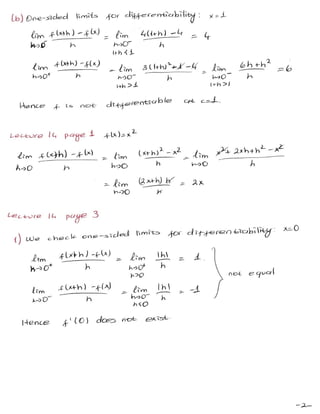 (b) One-sided limits for differentiability: x=1
lim h→0⁻ f(x+h)-f(x) / h = lim h→0⁻ 1+h<1 4(1+h)-4 / h = 4
lim h→0⁺ f(x+h)-f(x) / h = lim h→0⁺ 1+h>1 3(1+h)²+1-4 / h = lim h→0⁺ 1+h>1 6h+h² / h = 6
Hence f is not differentiable at c=1.
Lecture 14 page 1 f(x)=x²
lim h→0 f(x+h)-f(x) / h = lim h→0 (x+h)²-x² / h = lim h→0 x²+2xh+h²-x² / h
= lim h→0 (2x+h)h / h = 2x
Lecture 14 page 3
1) We check one-sided limits for differentiability: x=0
lim h→0⁺ f(x+h)-f(x) / h = lim h→0⁺ h>0 |h| / h = 1
not equal
lim h→0⁻ f(x+h)-f(x) / h = lim h→0⁻ h<0 |h| / h = -1
Hence f'(0) does not exist.
-2-